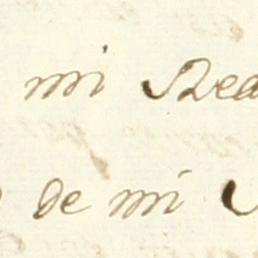 mi Rea
de mi